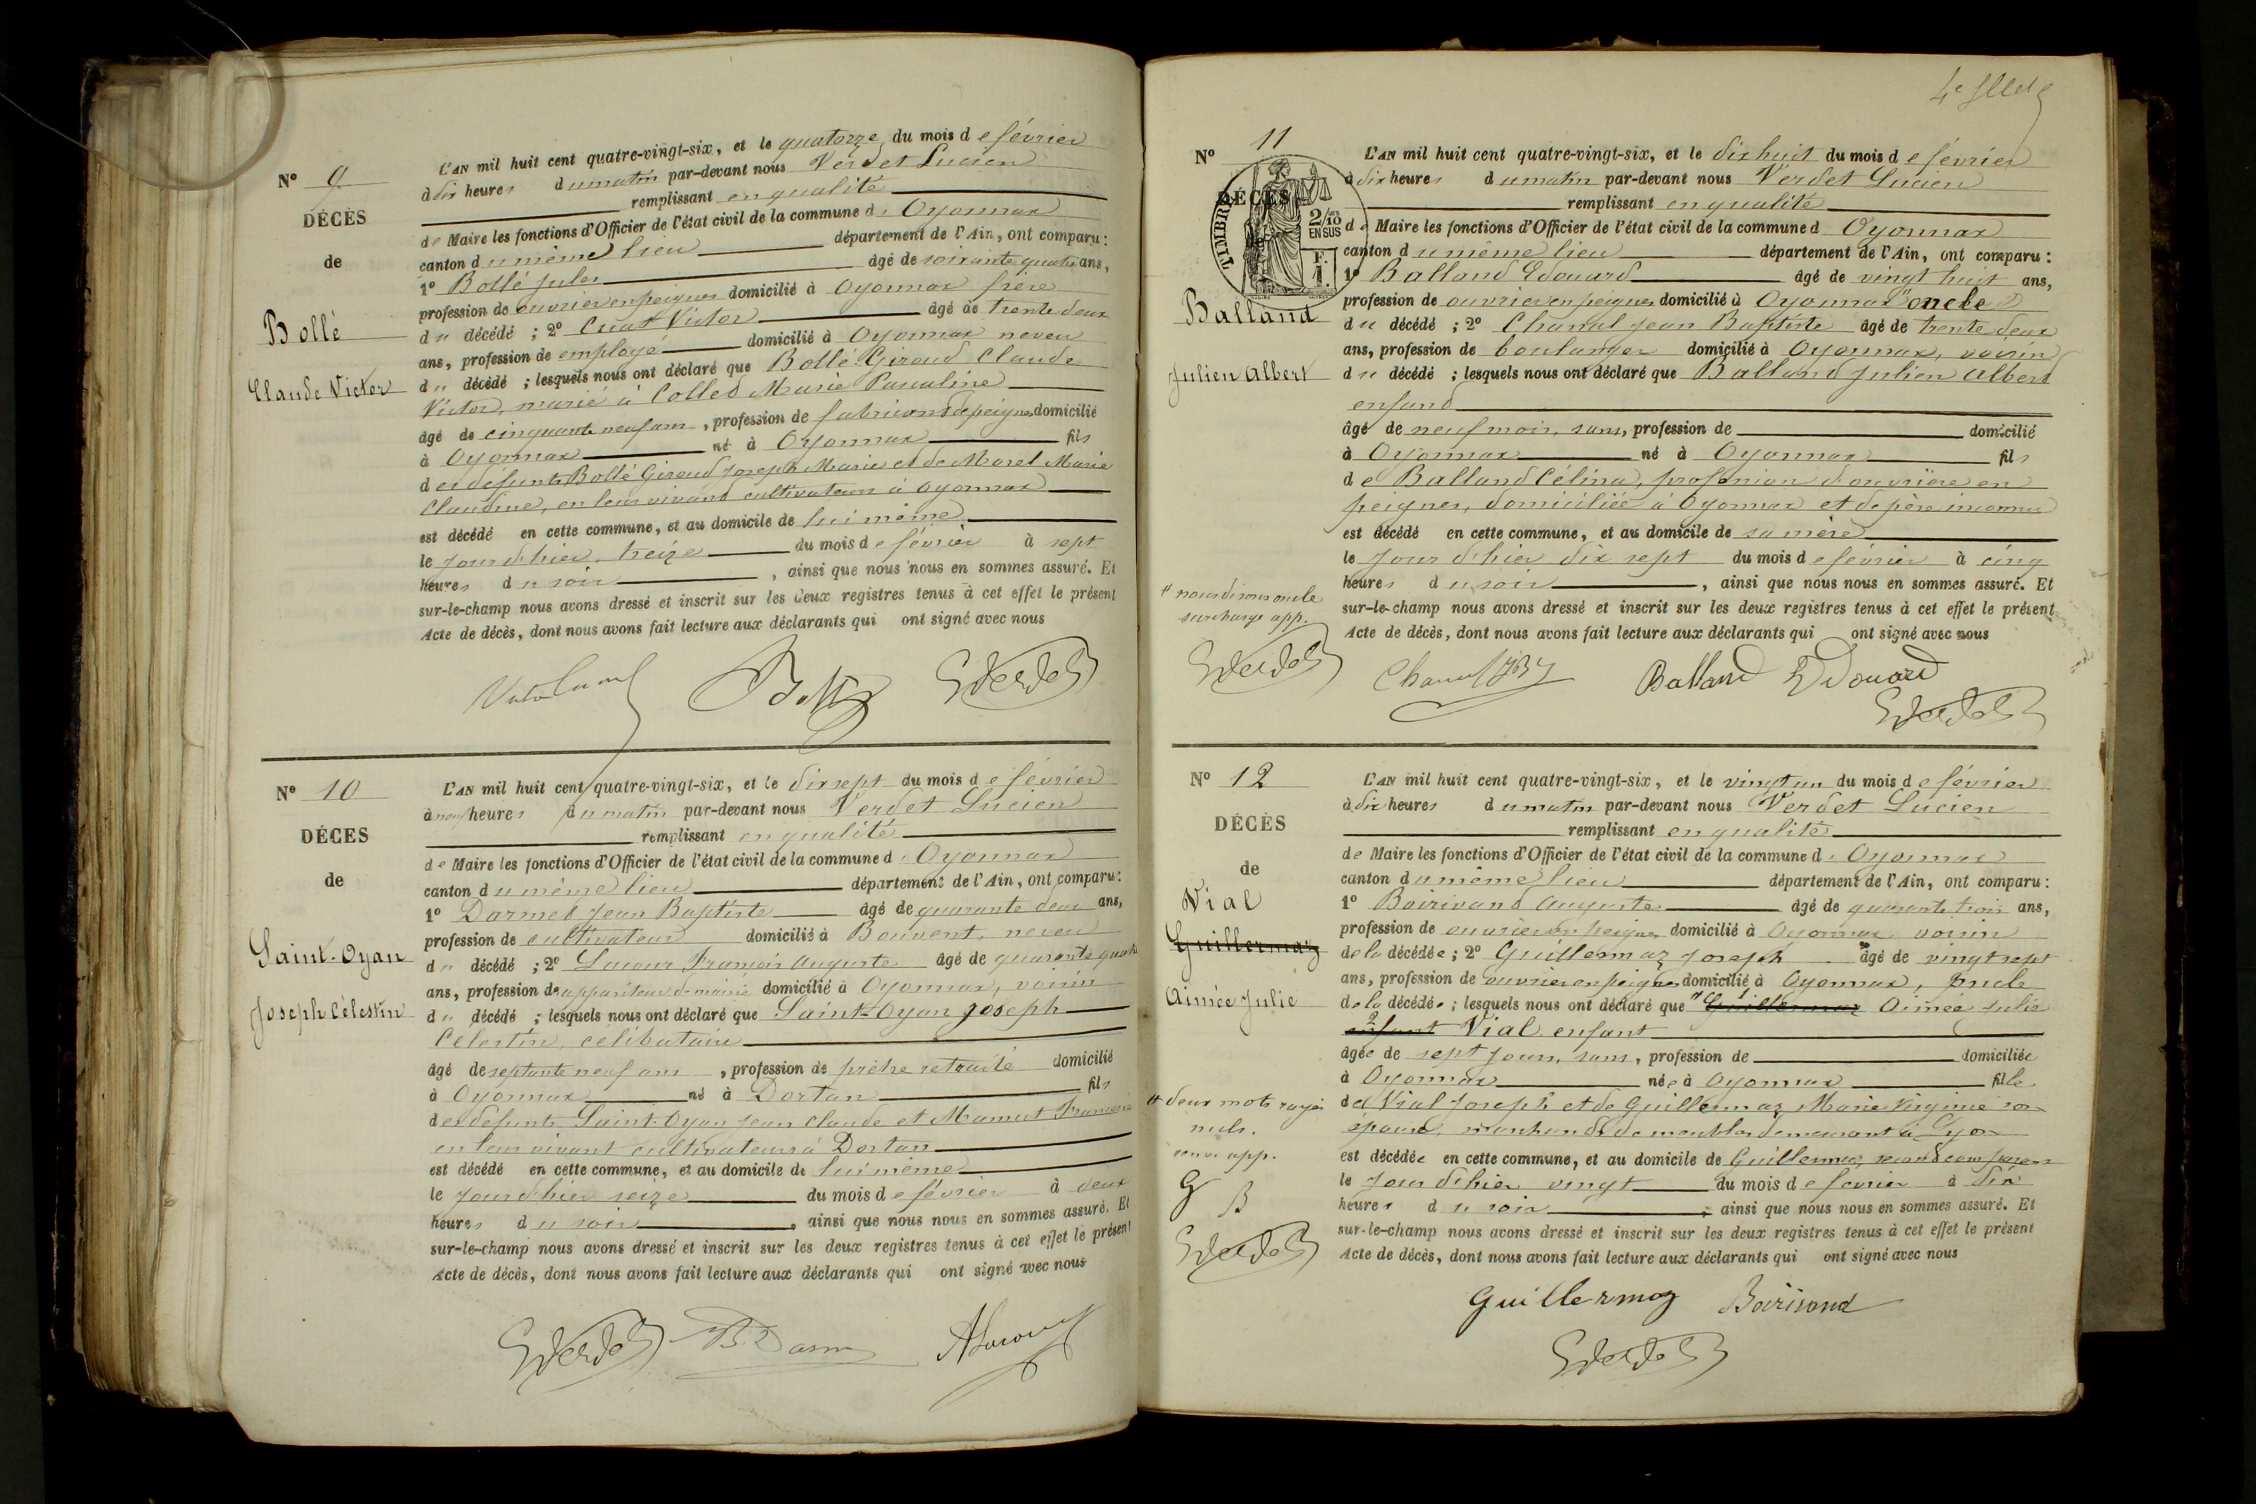 N° 9
DÉCÈS
de
Bollé
Claude Victor
L'AN mil huit cent quatre-vingt-six, et le quatorze du mois de février
à dix heures du matin par-devant nous Verdet Lucien
remplissant en qualité
de Maire les fonctions d'Officier de l'état civil de la commune d Oyonnax
canton du même lieu département de l'Ain, ont comparu :
1° Bollé Jules âgé de soixante quatre ans,
profession de ouvrier en peignes domicilié à Oyonnax frère
du décédé ; 2° Cuat Victor âgé de trente deux
ans, profession de employé domicilié à Oyonnax neveu
du décédé ; lesquels nous ont déclaré que Bollé Giroud Claude
Victor, marié à Collet Marie Pascaline
âgé de cinquante neuf ans, profession de fabricant de peignes domicilié
à Oyonnax né à Oyonnax fils
des défunts Bollé Giroud Joseph Marie et de Morel Marie
Claudine, en leur vivant cultivateurs à Oyonnax
est décédé en cette commune, et au domicile de lui même
le jour d'hier treize du mois de février à sept
heures du soir, ainsi que nous nous en sommes assuré. Et
sur-le-champ nous avons dressé et inscrit sur les deux registres tenus à cet effet le présent
Acte de décès, dont nous avons fait lecture aux déclarants qui ont signé avec nous
Bollé Verdet
N° 10
DÉCES
de
Saint-Oyan
Joseph Célestin
L'AN mil huit cent quatre-vingt-six, et le dix sept du mois de février
à neuf heures du matin par-devant nous Verdet Lucien
remplissant en qualité
de Maire les fonctions d'Officier de l'état civil de la commune d Oyonnax
canton du même lieu département de l'Ain, ont comparu :
1° Darmet Jean Baptiste âgé de quarante deux ans,
profession de cultivateur domicilié à Bouvent, neveu
du décédé ; 2° Lacour François Auguste âgé de quarante quatre
ans, profession de appariteur de mairie domicilié à Oyonnax, voisin
du décédé ; lesquels nous ont déclaré que Saint-Oyan Joseph
Célestin, célibataire
âgé de septante neuf ans, profession de prêtre retraité domicilié
à Oyonnax né à Dortan fils
des défunts Saint-Oyan Jean Claude et Mamet Françoise
en leur vivant cultivateurs à Dortan
est décédé en cette commune, et au domicile de lui même
le jour d'hier seize du mois de février à deux
heures du soir, ainsi que nous nous en sommes assuré. Et
sur-le-champ nous avons dressé et inscrit sur les deux registres tenus à cet effet le présent
Acte de décès, dont nous avons fait lecture aux déclarants qui ont signé avec nous
Verdet JB Darm Alacour
N° 11
DÉCÈS
de
TIMBRE
2/10
EN SUS
F.
1.
Balland
Julien Albert
L'AN mil huit cent quatre-vingt-six, et le dix huit du mois de février
à dix heures du matin par-devant nous Verdet Lucien
remplissant en qualité
de Maire les fonctions d'Officier de l'état civil de la commune d Oyonnax
canton du même lieu département de l'Ain, ont comparu :
1° Balland Edouard âgé de vingt huit ans,
profession de ouvrier en peignes domicilié à Oyonnax oncle
du décédé ; 2° Chanal Jean Baptiste âgé de trente deux
ans, profession de boulanger domicilié à Oyonnax, voisin
du décédé ; lesquels nous ont déclaré que Balland Julien Albert
enfant
âgé de neuf mois, sans, profession de domicilié
à Oyonnax né à Oyonnax fils
de Balland Célina, profession d'ouvrière en
peignes, domiciliée à Oyonnax et de père inconnu
est décédé en cette commune, et au domicile de sa mère
le jour d'hier dix sept du mois de février à cinq
heures du soir, ainsi que nous nous en sommes assuré. Et
sur-le-champ nous avons dressé et inscrit sur les deux registres tenus à cet effet le présent
Acte de décès, dont nous avons fait lecture aux déclarants qui ont signé avec nous
# nous disons oncle
surcharge app.
Verdet
Chanal JB Balland Edouard
Verdet
N° 12
DÉCÈS
de
Vial
Guillermaz
Aimée Julie
L'AN mil huit cent quatre-vingt-six, et le vingt un du mois de février
à dix heures du matin par-devant nous Verdet Lucien
remplissant en qualité
de Maire les fonctions d'Officier de l'état civil de la commune d Oyonnax
canton du même lieu département de l'Ain, ont comparu :
1° Boirivand Auguste âgé de quarante trois ans,
profession de ouvrier en peignes domicilié à Oyonnax voisin
de la décédée ; 2° Guillermaz Joseph âgé de vingt sept
ans, profession de ouvrier en peignes domicilié à Oyonnax, oncle
de la décédée ; lesquels nous ont déclaré que # Guillermaz Aimée Julie
enfant Vial enfant
âgée de sept jours, sans, profession de domiciliée
à Oyonnax née à Oyonnax fille
de Vial Joseph et de Guillermaz Marie Virginie son
épouse, marchands de meubles demeurant à Lyon
est décédée en cette commune, et au domicile de Guillermaz, second comparant
le jour d'hier vingt du mois de février à dix
heures du soir, ainsi que nous nous en sommes assuré. Et
sur-le-champ nous avons dressé et inscrit sur les deux registres tenus à cet effet le présent
Acte de décès, dont nous avons fait lecture aux déclarants qui ont signé avec nous
# deux mots rayés
nuls.
app.
G B
Verdet
Guillermoz Boirivand
Verdet